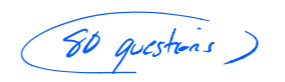 80 questions